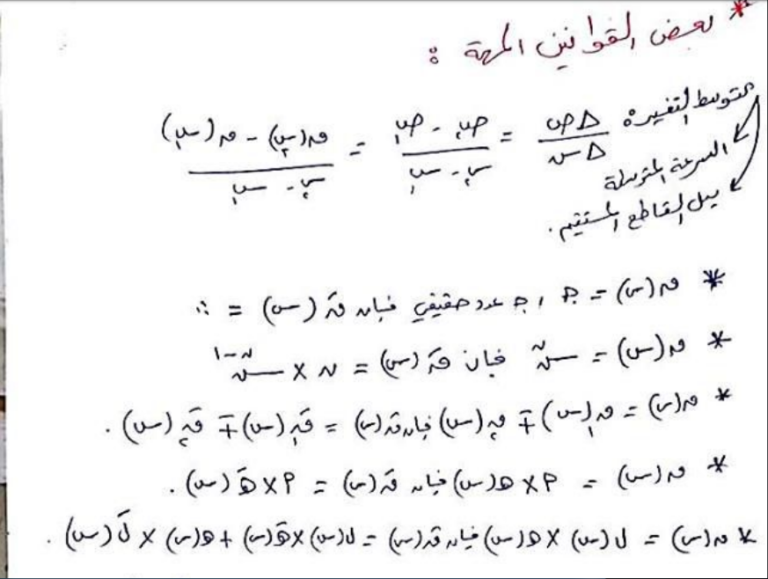 * بعض القوانين المهمة :
متوسط التغير = Δص / Δس = ص₂ - ص₁ / س₂ - س₁ = ق(س₂) - ق(س₁) / س₂ - س₁
السرعة المتوسطة
ميل القاطع المستقيم .
* ق(س) = جـ ، جـ عدد حقيقي فإن قَ(س) = ٠
* ق(س) = سⁿ فإن قَ(س) = ن × سⁿ⁻¹
* ق(س) = ق₁(س) ∓ ق₂(س) فإن قَ(س) = قَ₁(س) ∓ قَ₂(س) .
* ق(س) = P × هـ(س) فإن قَ(س) = P × هـَ(س) .
* ق(س) = ل(س) × هـ(س) فإن قَ(س) = ل(س) × هـَ(س) + هـ(س) × لَ(س) .